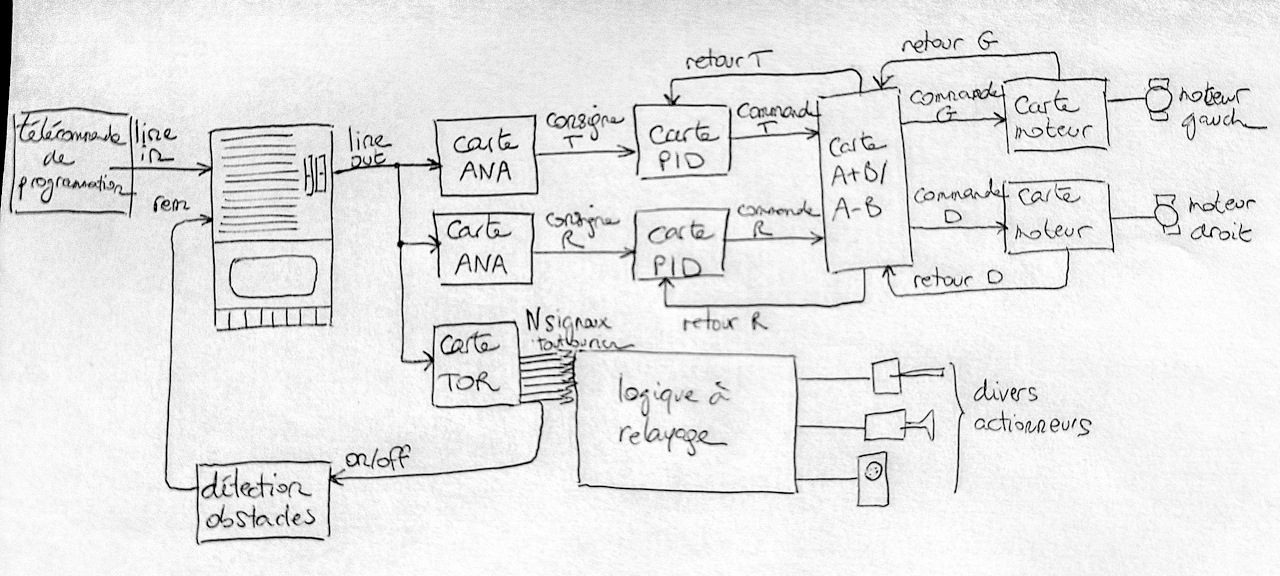 télécommande
de
programmation
line
in
rem
line
out
carte
ANA
consigne
T
carte
PID
retour T
commande
T
carte
A+B/
A-B
retour G
commande
G
carte
moteur
moteur
gauche
carte
ANA
consigne
R
carte
PID
commande
R
retour R
commande
D
carte
moteur
retour D
moteur
droit
carte
TOR
N signaux
tout ou rien
logique à
relayage
divers
actionneurs
on/off
détection
obstacles